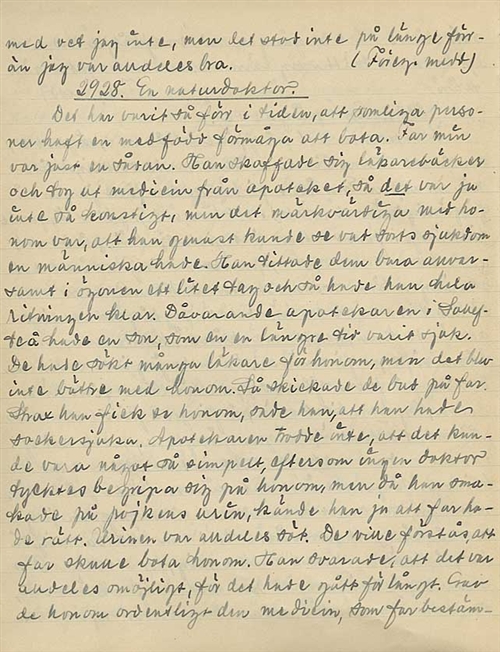 med vet jag inte, men det stod inte på länge förr-
än jag var alldeles bra. (Föreg. medd)
2928. En naturdoktor.
Det har varit så förr i tiden, att somliga perso-
ner haft en medfödd förmåga att bota. Far min
var just en sådan. Han skaffade sig läkareböcker
och tog ut medicin från apoteket, så det var ju
inte så konstigt, men det märkvärdiga med ho-
nom var, att han genast kunde se vad sorts sjukdom
en människa hade. Han tittade dem bara allvar-
samt i ögonen ett litet tag och så hade han hela
ritningen klar. Dåvarande apotekaren i
hade en son, som en en längre tid varit sjuk.
De hade sökt många läkare för honom, men det blev
inte bättre med honom. Så skickade de bud på far.
Strax han fick se honom, sade han, att han hade
sockersjuka. Apotekaren trodde inte, att det kun-
de vara något så simpelt, eftersom ingen doktor
tycktes begripa sig på honom, men då han sma-
kade på pojkens urin, kände han ju att far ha-
de rätt. Urinen var alldeles söt. De ville förstås att
far skulle bota honom. Han svarade, att det var
alldeles omöjligt, för det hade gått för långt. Gav
de honom ordentligt den medicin, som far bestäm-